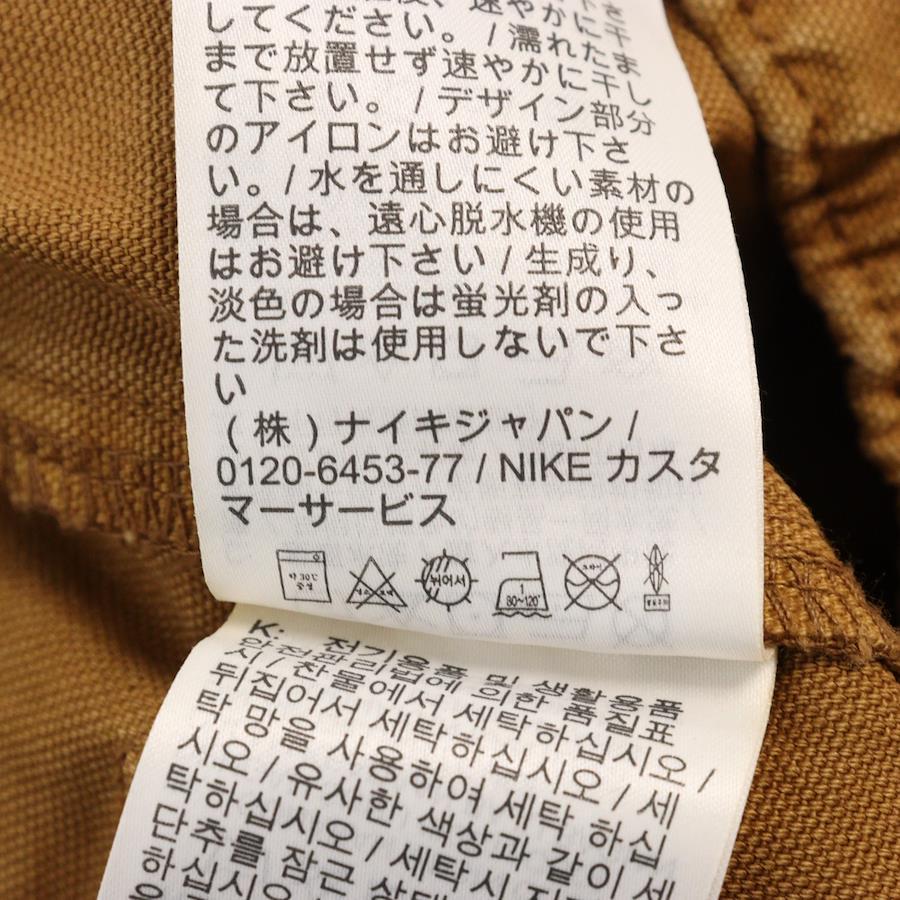 速やかに
してください。/濡れたま
まで放置せず速やかに干し
て下さい。/デザイン部分
のアイロンはお避け下さ
い。/水を通しにくい素材の
場合は、遠心脱水機の使用
はお避け下さい/生成り、
淡色の場合は蛍光剤の入っ
た洗剤は使用しないで下さ
い
(株)ナイキジャパン/
0120-6453-77 / NIKE カスタ
マーサービス
약 30℃ 중성 뉘어서 80~120°
K: 전기용품 및 생활용품
안전관리법에 의한 품질표
시 / 찬물에서 세탁하십시오 /
뒤집어서 세탁하십시오 / 세
탁 망을 사용하여 세탁 하십
시오 / 유사한 색상과 같이 세
탁하십시오 / 세탁시
단추를 잠근 상태
하십시오